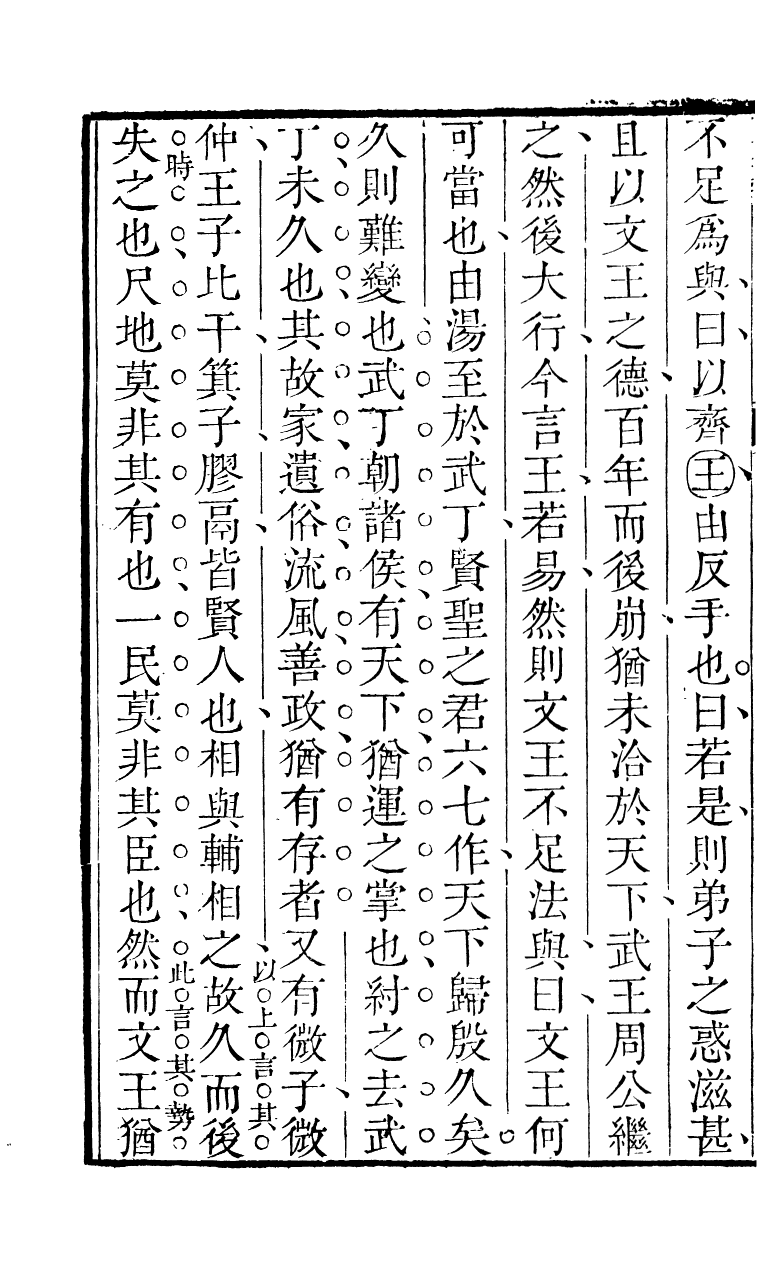 不足爲與曰以齊王由反手也曰若是則弟子之惑滋甚
且以文王之德百年而後崩猶未洽於天下武王周公繼
之然後大行今言王若易然則文王不足法與曰文王何
可當也由湯至於武丁賢聖之君六七作天下歸殷久矣
久則難變也武丁朝諸侯有天下猶運之掌也紂之去武
丁未久也其故家遺俗流風善政猶有存者又有微子微
以上言其
仲王子比干箕子膠鬲皆賢人也相與輔相之故久而後
時
此言其勢
失之也尺地莫非其有也一民莫非其臣也然而文王猶